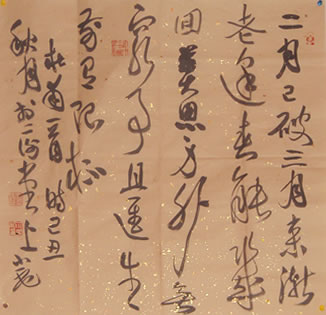 二月已破三月来漸
老逢春能幾
回莫思身外無
窮事且進生
前有限杯
杜甫一首時己丑
秋月於